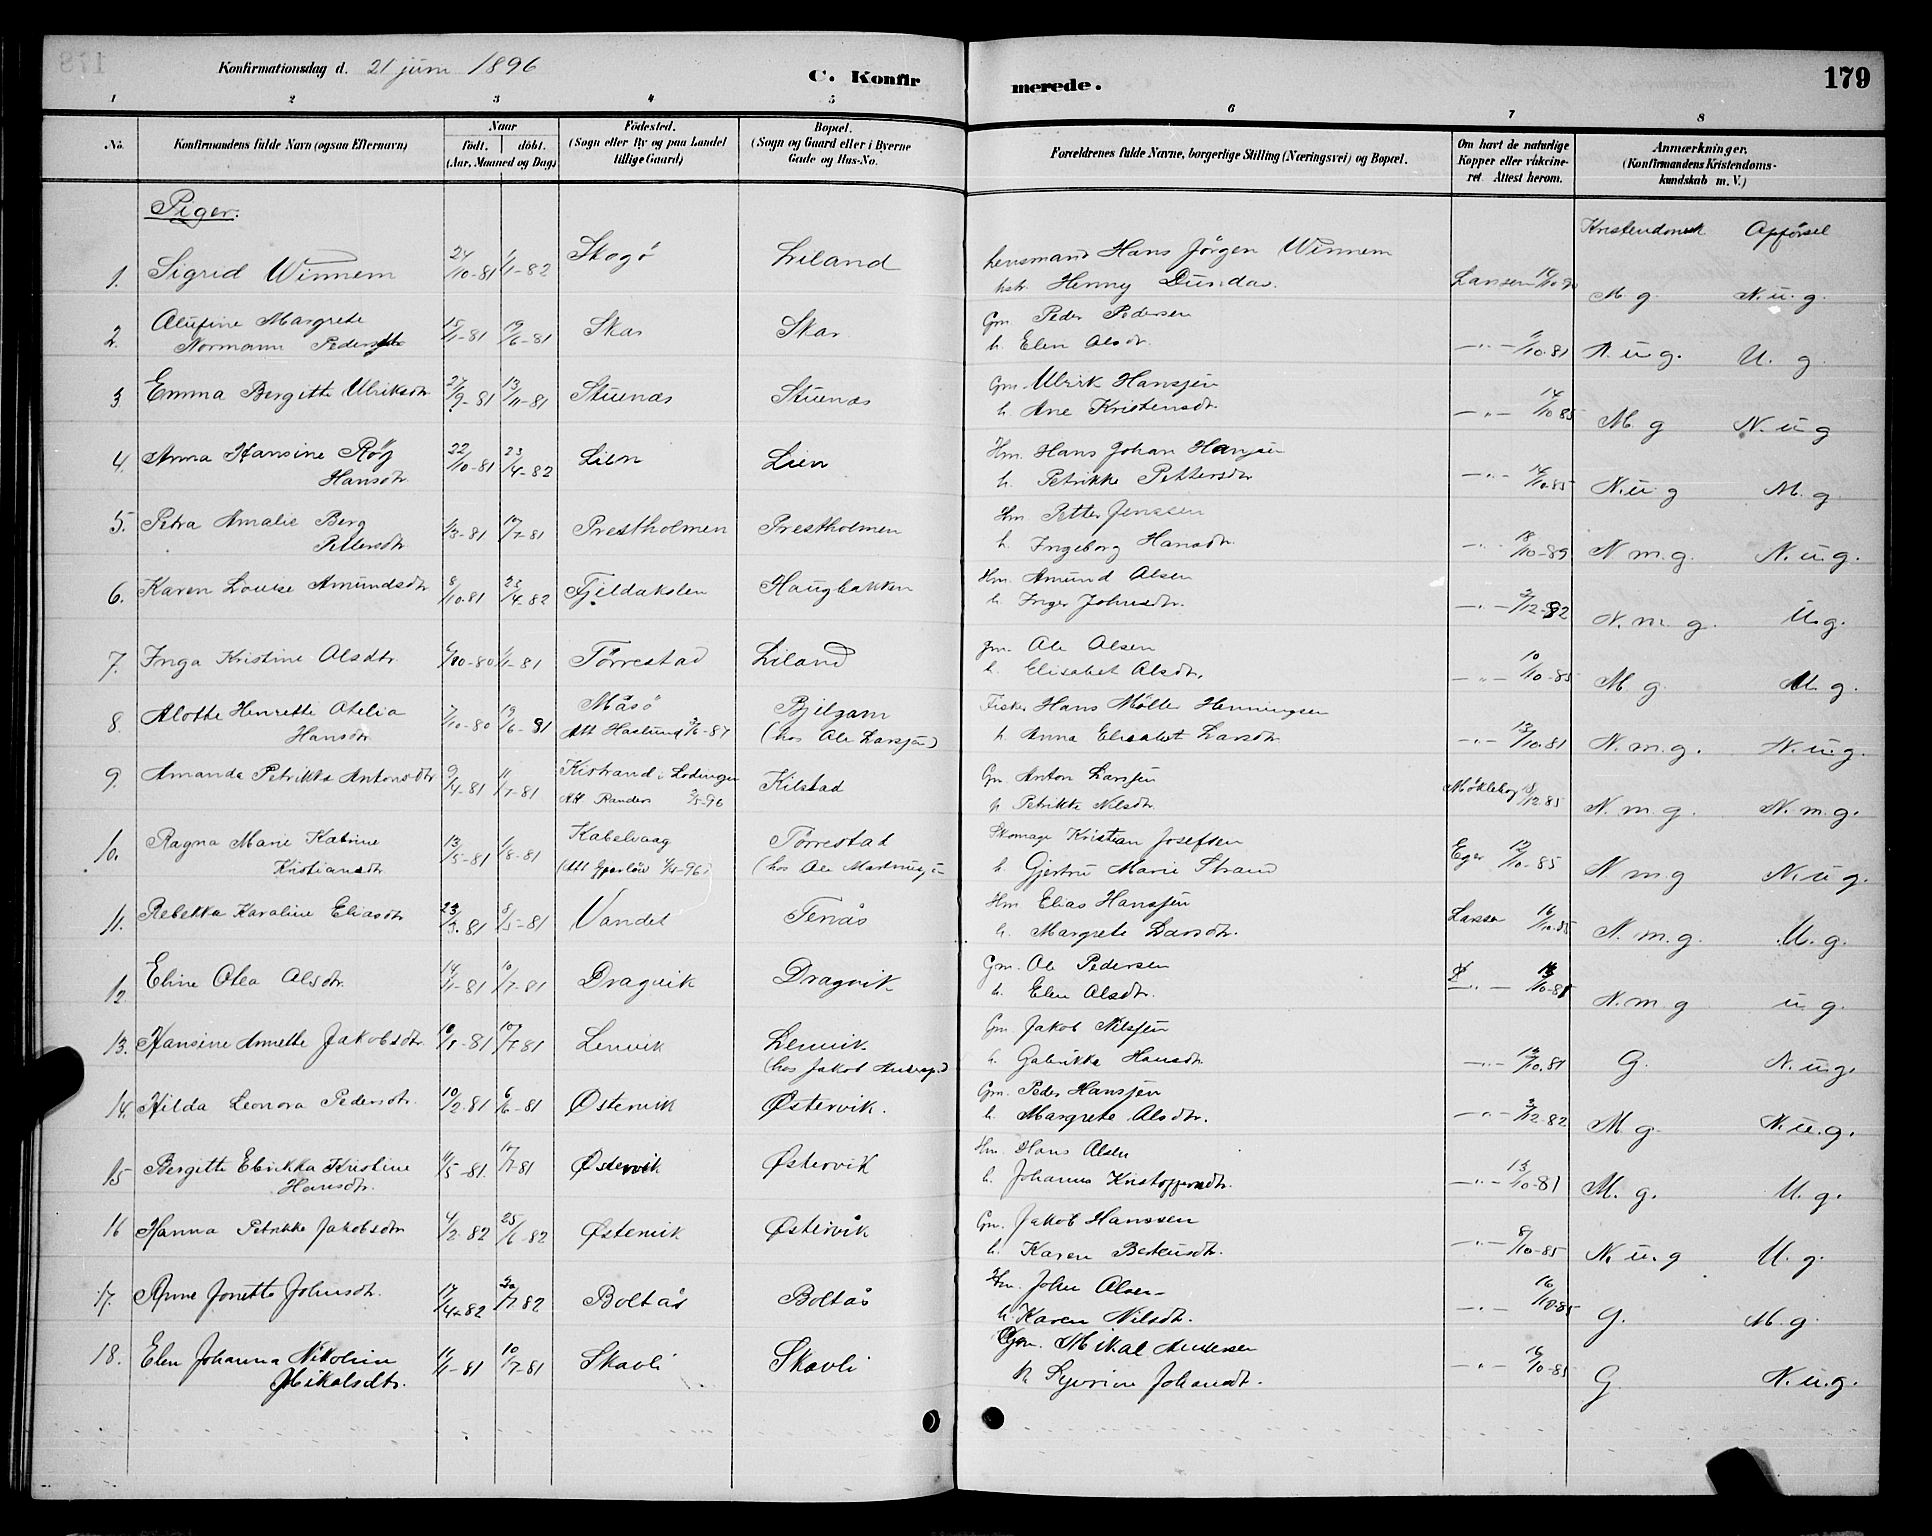 Konfirmationsdag d. 21 juni 1896
C. Konfirmerede.
179
1 2 3 4 5 6 7 8
No.
Konfirmandens fulde Navn (ogsaa Efternavn)
Naar
født. døbt.
(Aar, Maaned og Dag)
Fødested.
(Sogn eller By og paa Landet
tillige Gaard)
Bopæl.
(Sogn og Gaard eller i Byerne
Gade og Hus-No.
Forældrenes fulde Navne, borgerlige Stilling (Næringsvei) og Bopæl.
Om havt de naturlige
Kopper eller vakcine-
ret Attest herom.
Anmærkninger.
(Konfirmandens Kristendoms-
kundskab m. V.)
Piger:
Kristendomsk Opførsel
1. Sigrid Winnem 24/10-81 1/1-82 Skogö Liland Lensmand Hans Jörgen Winnem
hstr. Henny Dundas. Larsen M. g. N. u. g.
2. Olufine Margrete
Normann 15/1-81 19/6-81 Skar Skar Gm. Peder Pedersen
h. Elen Olsdr. -"- /10.81 N. u. g. U. g.
3 Emma Bergitte Ulriksdr 27/9-81 13/11-81 Stuenes Stuenes Gm. Ulrik Hansjen
h. Ane Kristensdr. -"- 14/10 85 M. g N. u g
4. Anna Hansine Röj
Hansdr. 22/10-81 23/4-82 Lien Lien Hm. Hans Johan Hansen
h. Petrikke Pettersdr -"- 14/10.85 N. u g M. g.
5. Petra Amalie Berg
Pettersdr 1/3-81 17/7-81 Prestholmen Prestholmen Hm Petter Jenssen
h. Ingeborg Hansdr. -"- 18/10-89 N m. g. N. u g.
6. Karen Louise Amundsdr 8/10.81 23/4-82 Fjeldakslen Haugbakken Hm. Amund Olsen
h. Inger Johnsdr. -"- /12-92 N. m. g. U. g.
7. Inga Kristine Olsdtr 1/1-81 Törrestad Liland gm. Ole Olsen
h. Elisabet Olsdr. -"- 10/10-85 M g. U. g.
8. Alotte Henrette Otelia
Hansdr 7/10-80 19/6-81 Måsö
Att Haslund /6-87 (hos Ole Larsjen) Fisker Hans Möller Henningsen
h. Anna Elisabet Larsdr -"- 13/10.81 N. m. g. N. u g.
9. Amanda Petrikka Antonsdtr 9/4-81 11/7-81 Kistrand i Lødingen
Att Randers /5-96 Kilstad Gm Anton Larsjen
h Petrikke Nilsdr. /12 85 N. m. g. N. m. g.
10. Ragna Marie Katrine
Kristiansdr 13/5-81 1/8-81 Kabelvaag Törrestad Skomager Kristian Josefsen
h. Gjertru Marie Strand Eger 12/10-85 N m g N. u g.
11. Rebekka Karoline Eliasdr 23/3.81 8/5-81 Vandet Tenås Hm Elias Hansjen
h. Margrete Larsdtr. Larsen 16/10.85 N. m. g. U. g.
12 Eline Olea Olsdtr. 14/1-81 10/7-81 Dragvik Dragvik Gm. Ole Pedersen
h. Elen Olsdtr. -"- N. m. g u. g.
13. Hansine Annette Jakobsdtr. 10/1-81 17/7 81 Lenvik Lenvik
Gm. Jakob Nilsjen
h. Gabrikke Hansdr. -"- 13/10.81 G. N. u g.
14. Hilda Leonora Pedersdtr. 10/2.81 6/6-81 Østervik Østervik. Gm. Peder Hansjen
h. Margrete Olsdtr. -"- /12.82 M g. N. u. g.
15 Bergitte Elrikka Kristine
Hansdtr. /5-81. 17/7-81 Østervik Østervik Hm. Hans Olsen
h. Johanna Kristoffersdtr. -"- 13/10-81 M. g. U. g.
16 Hanna Petrikke Jakobsdtr 4/2-82 25/6-82 Østervik Østervik Gm. Jakob Hanssen
h. Karen Berteusdr. -"- 8/10-85 N. u. g U. g.
17. Anne Jonette Johnsdr. 17/4-82 /7-82 Boltås Boltås Hm. John Olsen
h. Karen Nilsdtr. -"- 16/10-85 G. M. g.
18. Elen Johanna Nikoline
Mikalsdtr. 11/1-81 10/7-81 Skavli Skavli Gm. Mikal Andersen
h Syverine Johansdr. -"- 16/10-85 G. N. u. g.